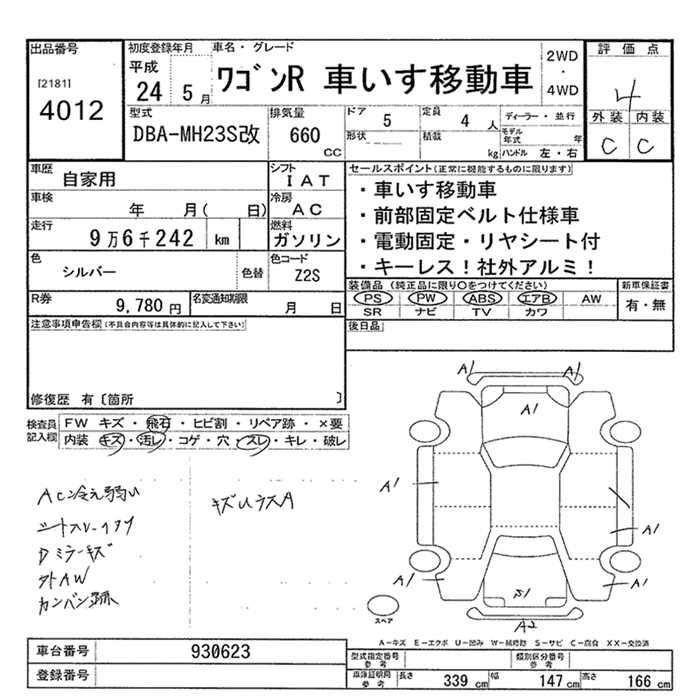 出品番号
[2181]
4012
初度登録年月
平成
24 5月
車名・グレード
ワゴンR 車いす移動車
2WD
・
4WD
評価点
4
外装 内装
C C
型式
DBA-MH23S改
排気量
660
CC
ドア 5
定員 4 人
ディーラー・並行
形状
積載 kg
モデル年式 年
ハンドル 左・右
車歴 自家用
シフト IAT
車検 年 月( 日)
冷房 AC
走行 9万6千242 km
燃料 ガソリン
色 シルバー 色替
色コード Z2S
R券 9,780 円
名変通知期限 月 日
セールスポイント(正常に機能するものに限ります)
・車いす移動車
・前部固定ベルト仕様車
・電動固定・リヤシート付
・キーレス!社外アルミ!
装備品(純正品に限り○をつけてください)
PS PW ABS エアB AW
SR ナビ TV カワ
新車保証書
有・無
後日品
注意事項申告欄(不具合内容等は具体的に記入して下さい)
修復歴 有〔箇所 〕
検査員記入欄
FW キズ・飛石・ヒビ割・リペア跡・×要
内装 キズ・汚レ・コゲ・穴・スレ・キレ・破レ
AC冷え弱い
Dミラーキズ
外AW
カンバン跡
キズUラスA
A1 A1
A1
A1
A1
A1
A1
A1
S1
A2
スペア
A-キズ E-エクボ U-凹み W-補修跡 S-サビ C-腐食 XX-交換済
車台番号 930623
登録番号
型式指定番号 参考
類別区分番号 参考
車庫証明用 参考
長さ 339 cm
幅 147 cm
高さ 166 cm